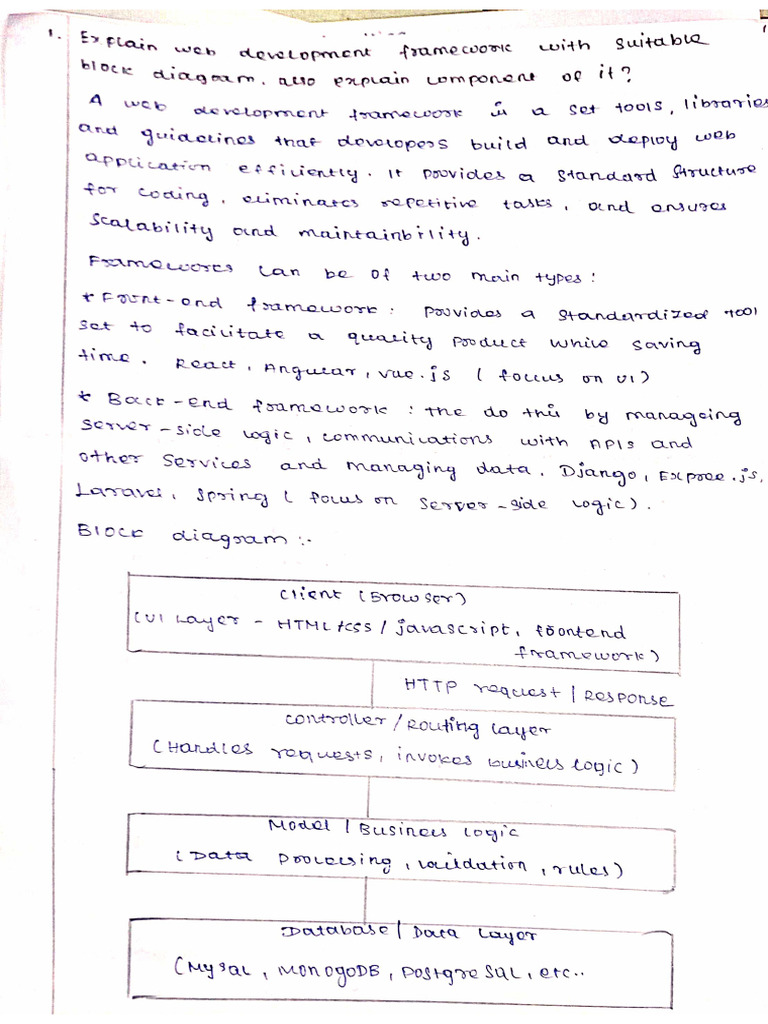 1. Explain web development framework with suitable
block diagram. also explain component of it?
A web development framework is a set tools, libraries
and guidelines that developers build and deploy web
application efficiently. It provides a standard structure
for coding, eliminates repetitive tasks, and ensures
scalability and maintainbility.
Frameworks can be of two main types:
* Front-end framework: provides a standardized tool
set to facilitate a quality product while saving
time. React, Angular, vue.js (foccus on UI)
* Back-end framework: the do this by manageing
server-side logic, communications with APIs and
other services and managing data. Django, Expree.js,
Laravel, spring (focus on server-side logic).
Block diagram:-
Client (Browser)
(UI Layer - HTML/css/javascript, frontend
framework)
HTTP request/RESPONSE
controller/Routing layer
(Handles requests, invokes business logic)
Model/Business logic
(Data processing, validation, rules)
Database/Data layer
(MySQL, MONOgoDB, PostgreSQL, etc..